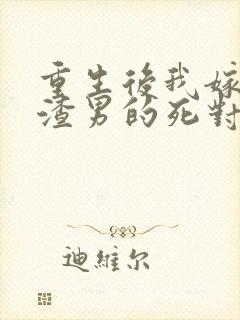 重生後我嫁
渣男的死對
迪維尔